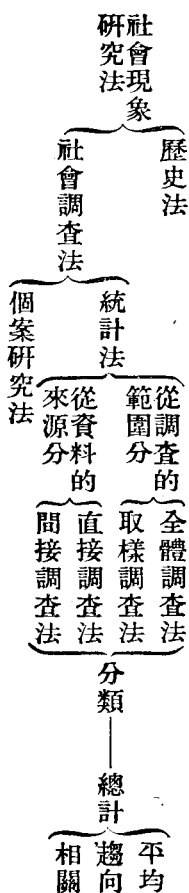 社會現象
研究法
歷史法
社會調査法
統計法
個案研究法
從調查的
範圍分
從資料的
來源分
全體調查法
取樣調查法
直接調查法
間接調查法
分類——總計
平均
趨向
相關